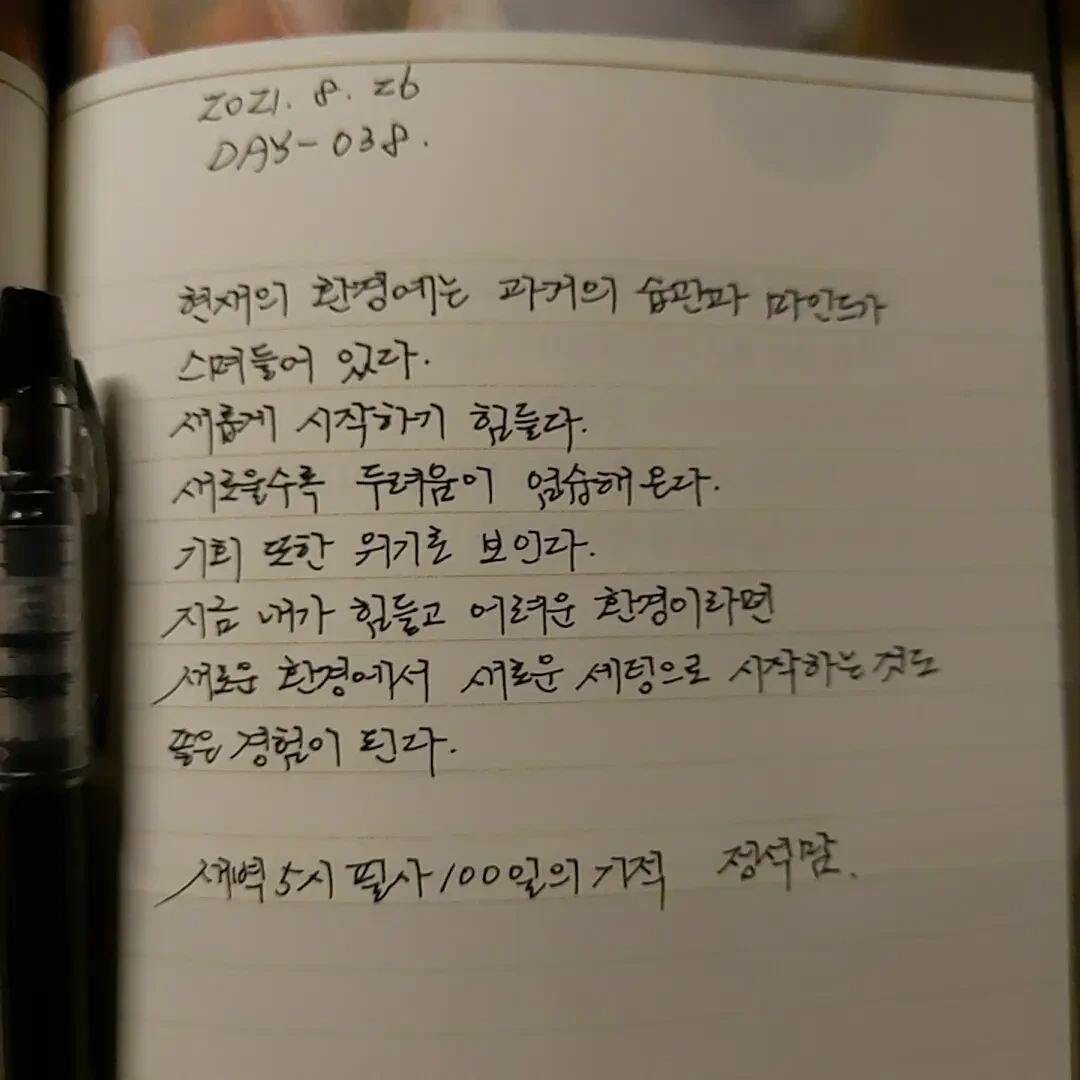 2021. 8. 26
DAY-038.
현재의 환경에는 과거의 습관과 마인드가
스며들어 있다.
새롭게 시작하기 힘들다.
새로울수록 두려움이 엄습해 온다.
기회 또한 위기로 보인다.
지금 내가 힘들고 어려운 환경이라면
새로운 환경에서 새로운 세팅으로 시작하는 것도
좋은 경험이 된다.
새벽 5시 필사 100일의 기적 정석맘.